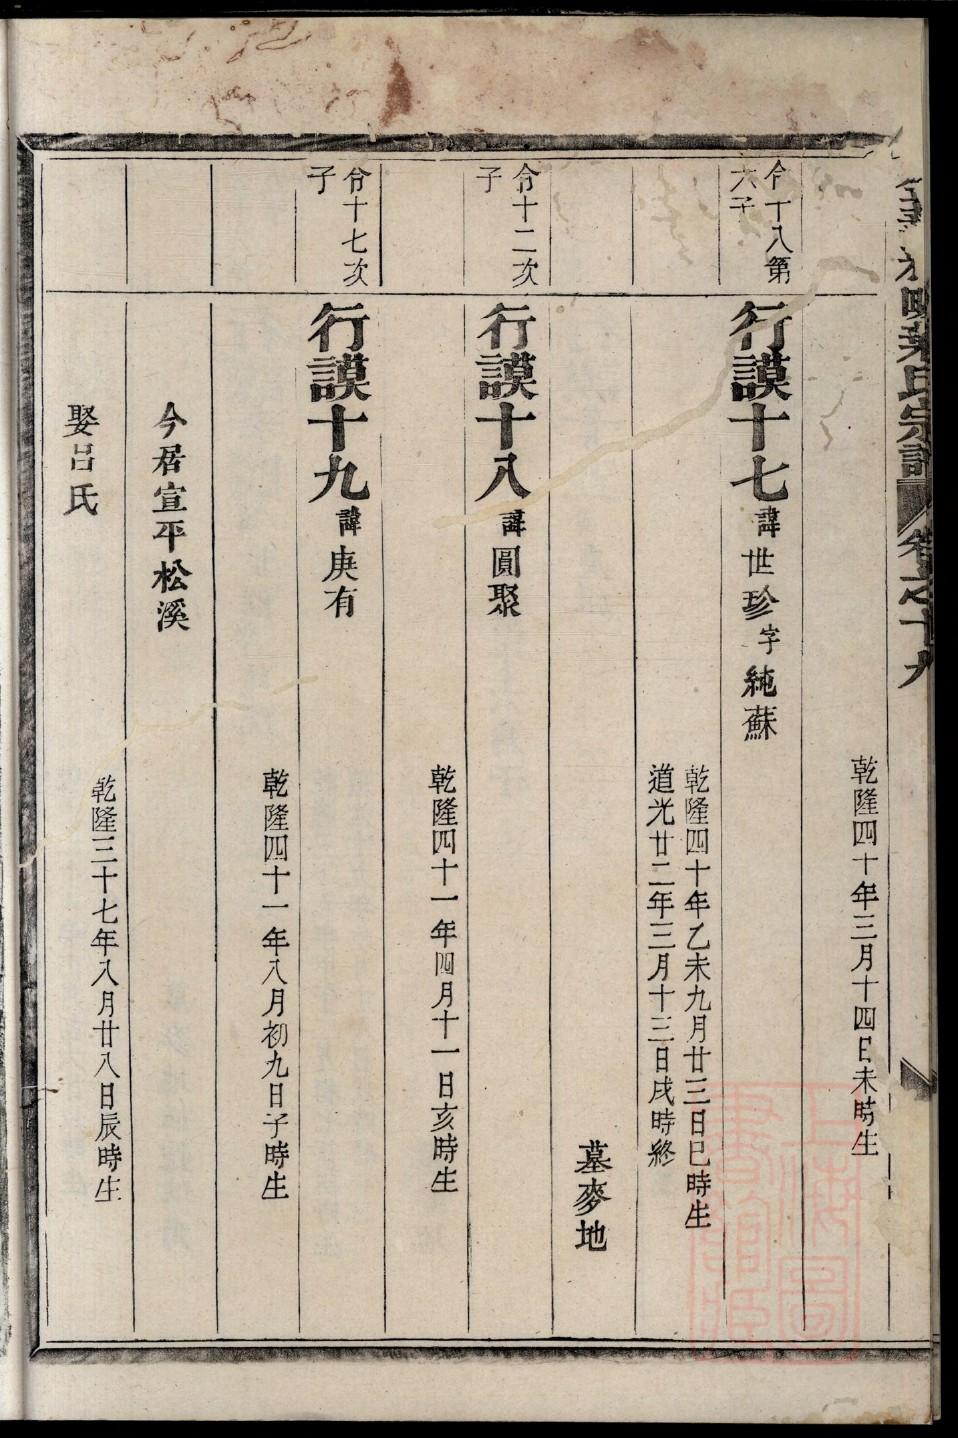 葉氏宗譜
卷之十九
乾隆四十年三月十四日未時生
仝十八第
六子
行謨十七 諱世珍字純蘇
乾隆四十年乙未九月廿三日巳時生
道光廿二年三月十三日戌時終
墓麥地
仝十二次
子
行謨十八 諱圓聚
乾隆四十一年四月十一日亥時生
仝十七次
子
行謨十九 諱庚有
乾隆四十一年八月初九日子時生
今居宣平松溪
娶吕氏
乾隆三十七年八月廿八日辰時生
上海圖書館藏